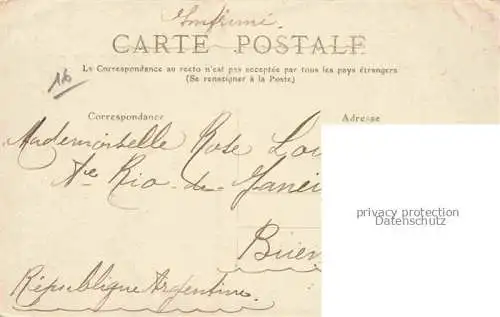 Imprimé.
CARTE POSTALE
La Correspondance au recto n'est pas acceptée par tous les pays étrangers
(Se renseigner à la Poste)
16
Correspondance Adresse
Mademoiselle Rose Lou
Rio-de-Janei
privacy protection
Datenschutz
Buen
République Argentine.